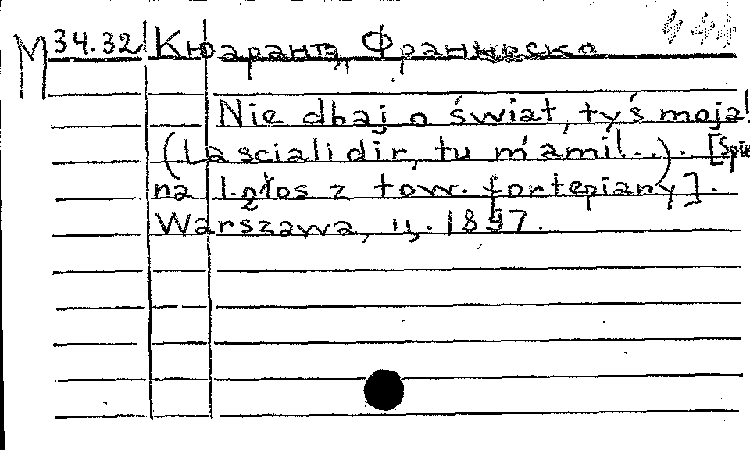 М 34.32 Кюаранта, Франческо
Nie dbaj o świat, tyś moja!
(Lasciali dir, tu m'ami!..). [Śpie
na 1.głos z tow. fortepiany].
Warszawa, ц. 1897.